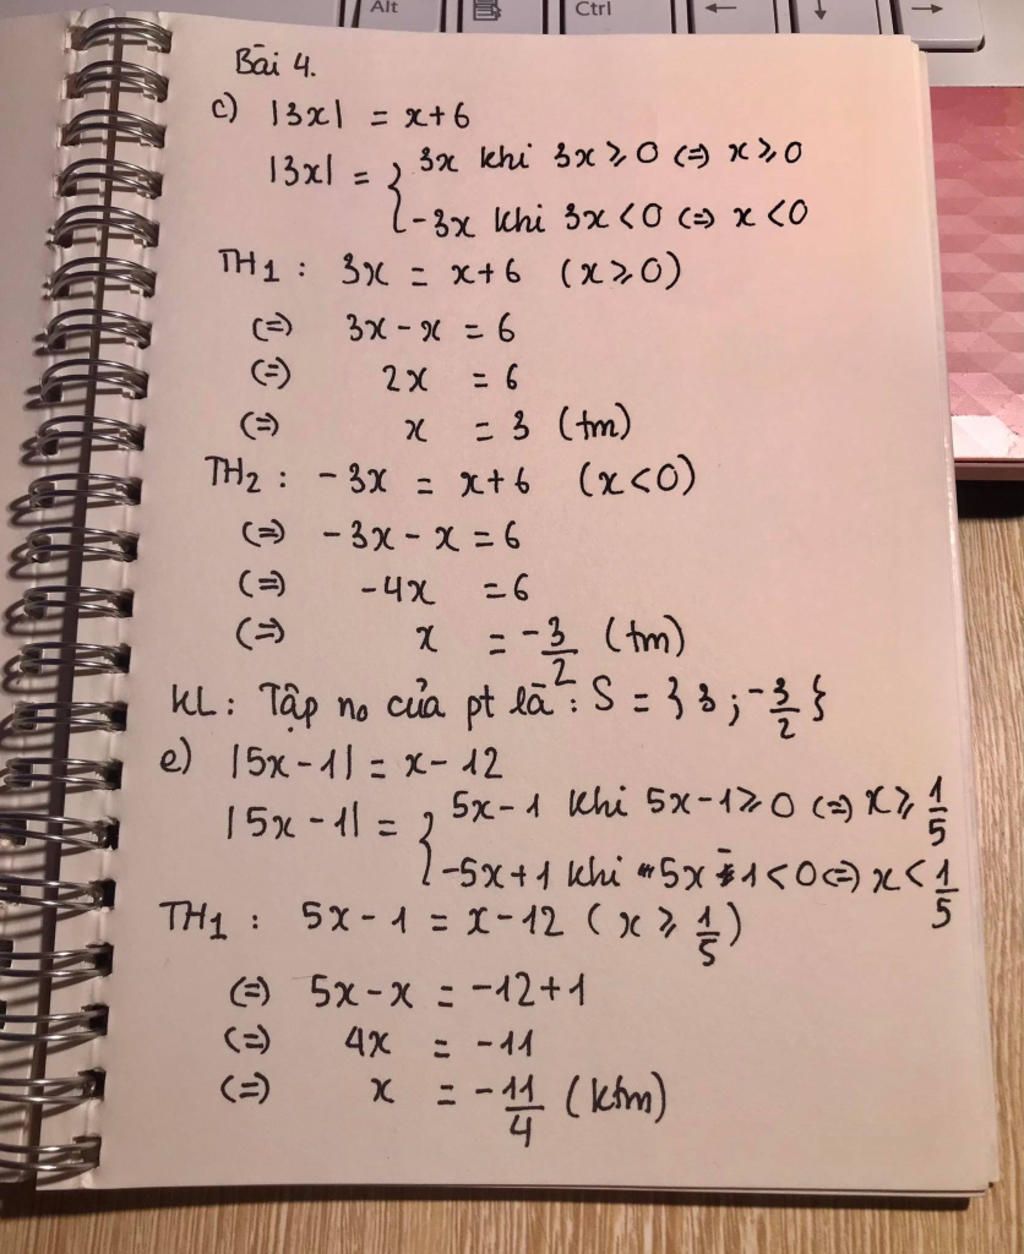 Alt
Ctrl
←
↓
→
Bài 4.
c) |3x| = x+6
|3x| = { 3x khi 3x ⩾ 0 (=) x ⩾ 0
-3x khi 3x < 0 (=) x < 0
TH1 : 3x = x+6 (x ⩾ 0)
(=) 3x - x = 6
(=) 2x = 6
(=) x = 3 (tm)
TH2 : -3x = x+6 (x < 0)
(=) -3x - x = 6
(=) -4x = 6
(=) x = -3/2 (tm)
KL : Tập no của pt là : S = { 3 ; -3/2 }
e) |5x - 1| = x - 12
|5x - 1| = { 5x - 1 khi 5x - 1 ⩾ 0 (=) x ⩾ 1/5
-5x + 1 khi 5x - 1 < 0 (=) x < 1/5
TH1 : 5x - 1 = x - 12 ( x ⩾ 1/5 )
(=) 5x - x = -12 + 1
(=) 4x = -11
(=) x = -11/4 (ktm)